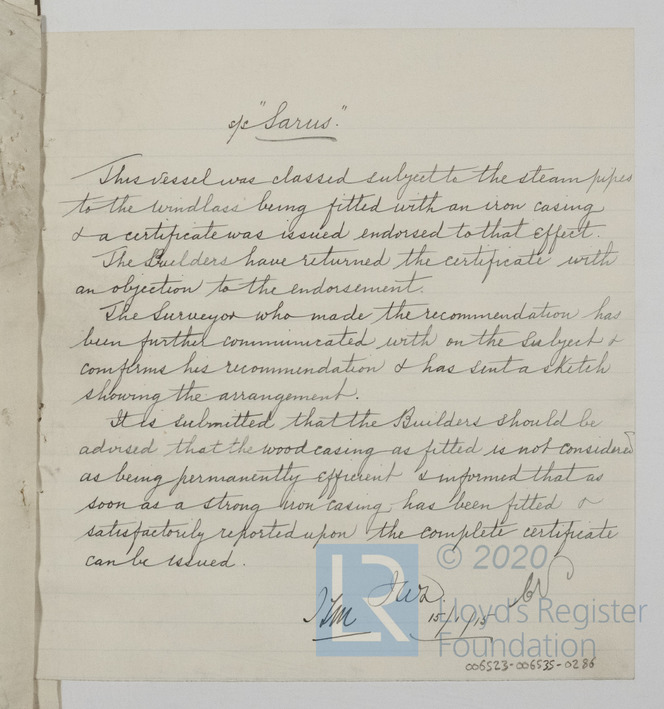 s/s "Sarus".
This vessel was classed subject to the steam pipes
to the windlass being fitted with an iron casing
& a certificate was issued endorsed to that effect.
The Builders have returned the certificate with
an objection to the endorsement.
The Surveyor who made the recommendation has
been further communicated with on the subject &
comfirms his recommendation & has sent a sketch
showing the arrangement.
It is submitted that the Builders should be
advised that the wood casing as fitted is not considered
as being permanently efficient & informed that as
soon as a strong iron casing, has been fitted &
satisfactorily reported upon the complete certificate
can be issued.
15/1/15
LR
© 2020
Lloyd's Register
Foundation
006523-006535-0286